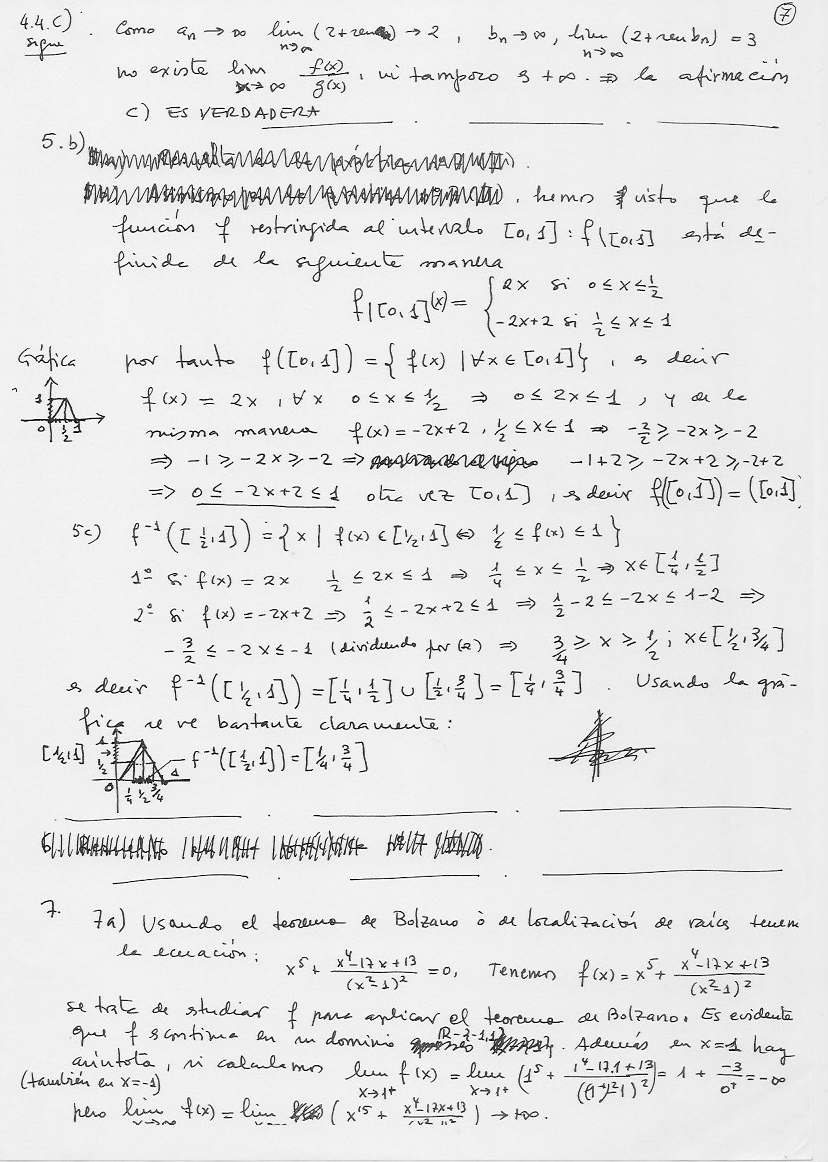 7
4.4.c) Como aₙ → ∞ lim n→∞ (2+senaₙ) → 2, bₙ → ∞, lim n→∞ (2+senbₙ) = 3
sigue
no existe lim x→∞ f(x)/g(x), ni tampoco es +∞. ⇒ la afirmación
c) ES VERDADERA
5.b)
, hemos visto que la
función f restringida al intervalo [0,1]: f|[0,1] está de-
finida de la siguiente manera
f|[0,1](x) = { 2x si 0≤x≤1/2
-2x+2 si 1/2≤x≤1
Gráfica por tanto f([0,1]) = {f(x) | ∀x∈[0,1]}, es decir
1 0 1/2 1
f(x) = 2x, ∀x 0≤x≤1/2 ⇒ 0≤2x≤1, y de la
misma manera f(x) = -2x+2, 1/2≤x≤1 ⇒ -2/2 ≥ -2x ≥ -2
⇒ -1 ≥ -2x ≥ -2 ⇒ -1+2 ≥ -2x+2 ≥ -2+2
⇒ 0 ≤ -2x+2 ≤ 1 otra vez [0,1], es decir f([0,1]) = ([0,1]
5c) f⁻¹([1/2,1]) = {x | f(x)∈[1/2,1] ⇔ 1/2 ≤ f(x) ≤ 1}
1º si f(x) = 2x 1/2 ≤ 2x ≤ 1 ⇒ 1/4 ≤ x ≤ 1/2 ⇒ x∈[1/4,1/2]
2º si f(x) = -2x+2 ⇒ 1/2 ≤ -2x+2 ≤ 1 ⇒ 1/2-2 ≤ -2x ≤ 1-2 ⇒
-3/2 ≤ -2x ≤ -1 (dividiendo por (2) ⇒ 3/4 ≥ x ≥ 1/2; x∈[1/2,3/4]
es decir f⁻¹([1/2,1]) = [1/4,1/2] ∪ [1/2,3/4] = [1/4,3/4]. Usando la grá-
fica se ve bastante claramente:
[1/2,1] 1 1/2 0 1/4 1/2 3/4 1 f⁻¹([1/2,1]) = [1/4,3/4]
7. 7a) Usando el teorema de Bolzano ò de localización de raíces tenem
la ecuación: x⁵ + (x⁴-17x+13)/(x²-1)² = 0, Tenemos f(x) = x⁵ + (x⁴-17x+13)/(x²-1)²
se trata de studiar f para aplicar el teorema de Bolzano. Es evidente
que f es continua en su dominio R-{-1,1}. Además en x=1 hay
asíntota, si calculamos lim x→1⁺ f(x) = lim x→1⁺ (1⁵ + (1⁴-17.1+13)/((1⁺)²-1)²) = 1 + -3/0⁺ = -∞
(también en x=-1)
pero lim x→∞ f(x) = lim (x⁵ + (x⁴-17x+13)/(x²-1)²) → +∞.